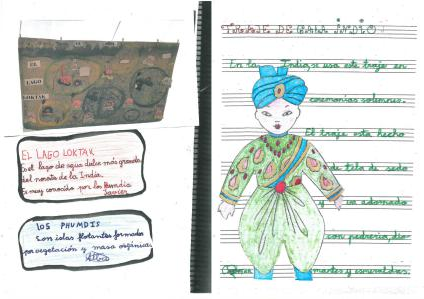 EL
LAGO
LOKTAK
EL LAGO LOKTAK
Es el lago de agua dulce más grande
del noreste de la India.
Es muy conocido por los Phumdis
Javier
LOS PHUMDIS
Son islas flotantes formadas
por vegetación y masa orgánica
TRAJE DE GALA INDIO
En la India, se usa este traje en
ceremonias solemnes.
El traje esta hecho
de tela de seda
y va adornado
con pedrería, dia
mantes y esmeraldas.